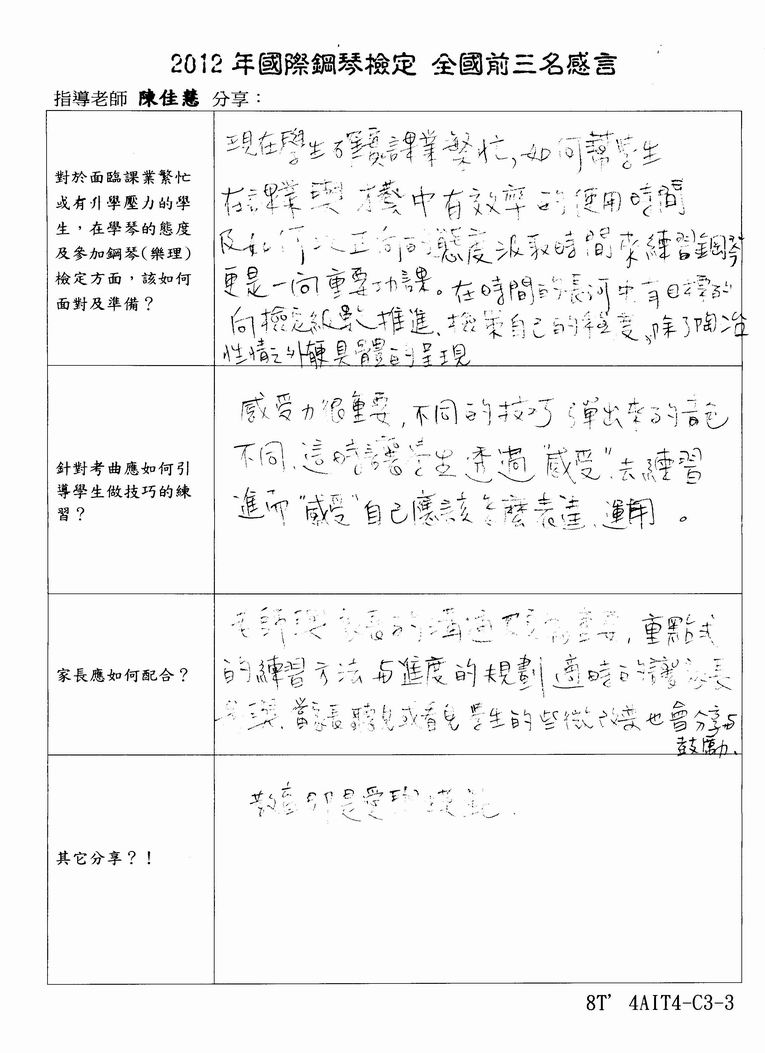 2012 年國際鋼琴檢定 全國前三名感言
指導老師 陳佳慧 分享：
對於面臨課業繁忙
或有升學壓力的學
生，在學琴的態度
及參加鋼琴(樂理)
檢定方面，該如何
面對及準備？
現在學生課業繁忙，如何幫學生
在課業與才藝中有效率的使用時間
及如何以正向的態度汲取時間來練習鋼琴
更是一向重要功課。在時間的長河中有目標的
向檢定級數推進、檢策自己的程度，除了陶冶
性情之外更具體的呈現
針對考曲應如何引
導學生做技巧的練
習？
感受力很重要，不同的技巧彈出來的音色
不同、這時讓學生透過"感受"去練習
進而"感受"自己應該怎麼表達、運用。
家長應如何配合？
老師與家長的溝通更為重要，重點式
的練習方法与進度的規劃適時的讓家長
參與、當家長聽見或看見學生的些微改變也會分享与
鼓勵、
其它分享？！
教育即是愛與
8T' 4AIT4-C3-3